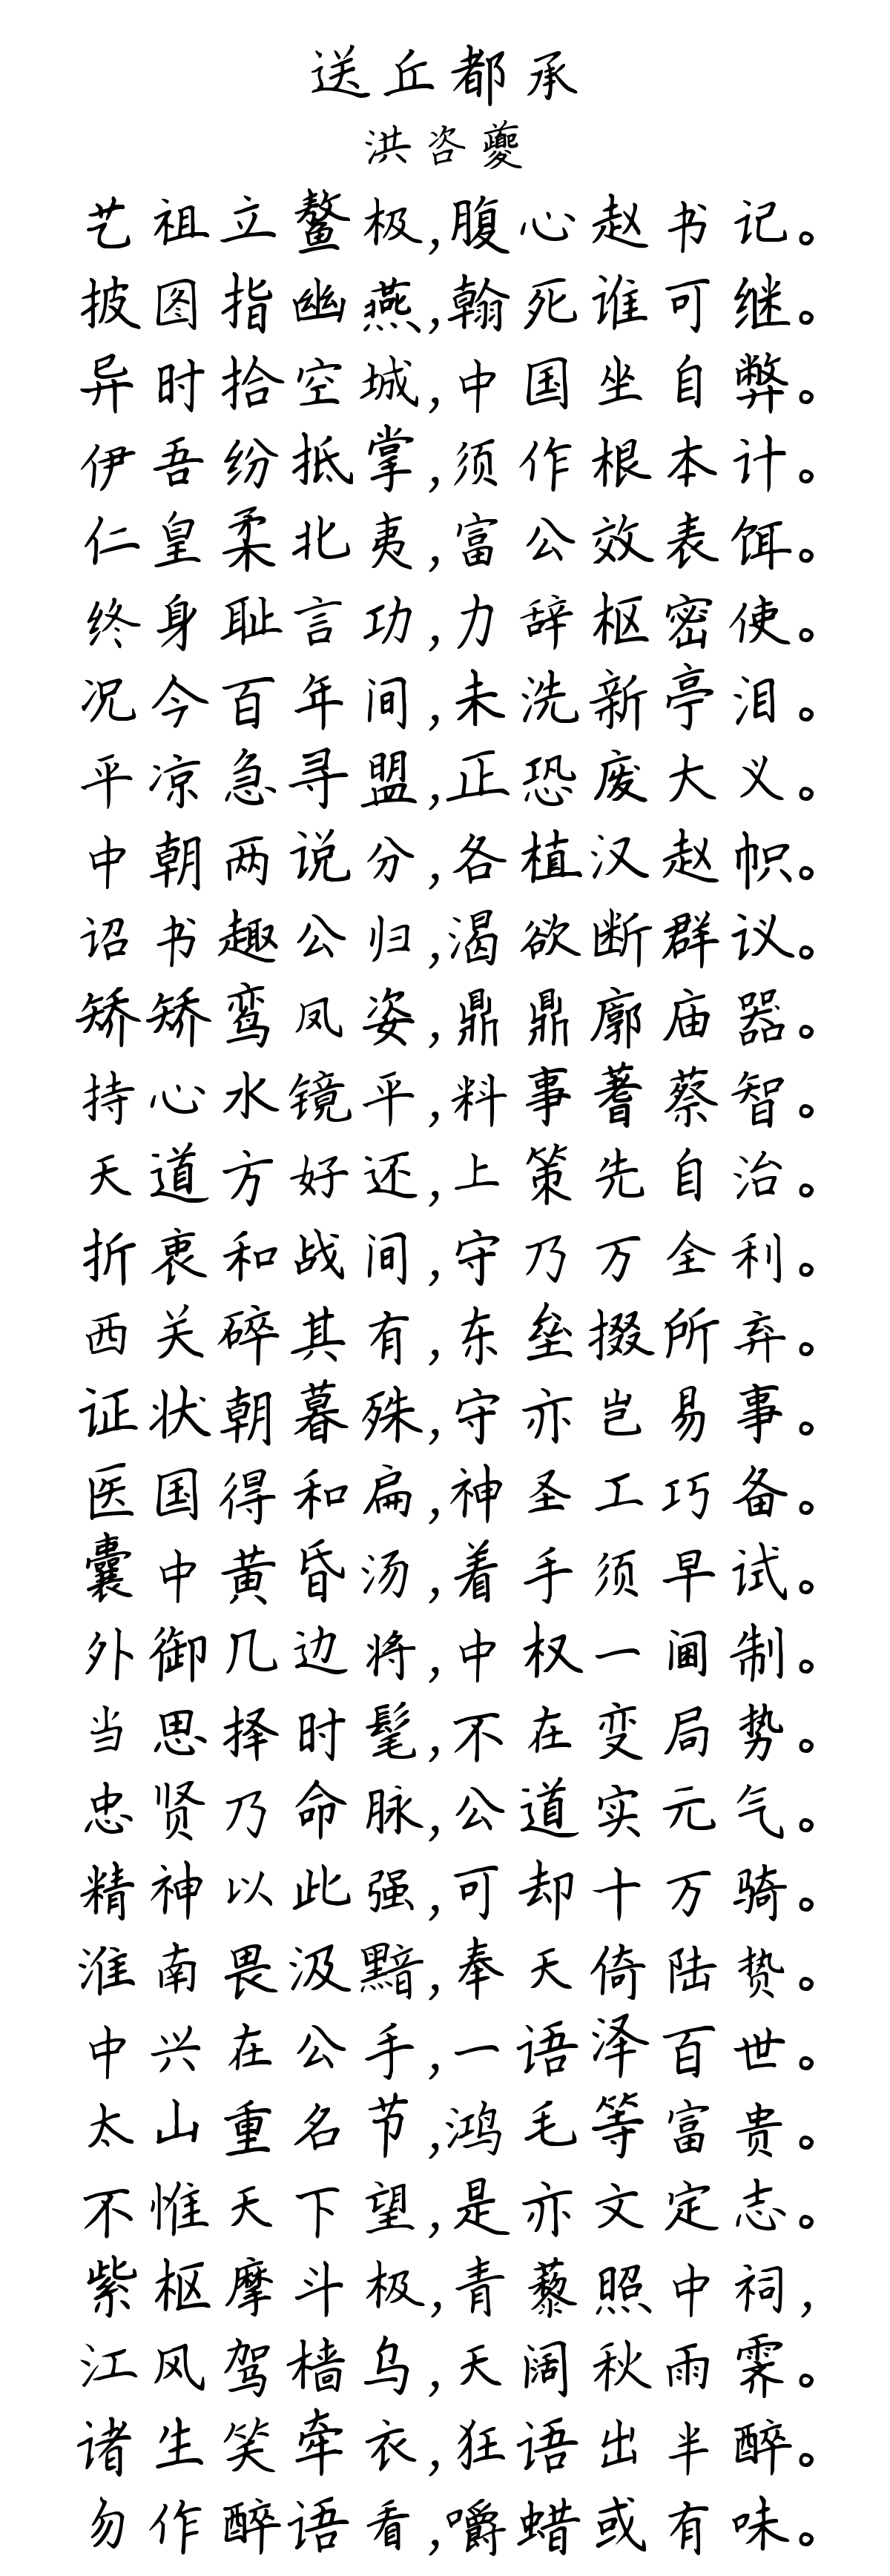 送丘都承
洪咨夔
艺祖立鳌极,腹心赵书记。
披图指幽燕,翰死谁可继。
异时拾空城,中国坐自弊。
伊吾纷抵掌,须作根本计。
仁皇柔北夷,富公效表饵。
终身耻言功,力辞枢密使。
况今百年间,未洗新亭泪。
平凉急寻盟,正恐废大义。
中朝两说分,各植汉赵帜。
诏书趣公归,渴欲断群议。
矫矫鸾凤姿,鼎鼎廓庙器。
持心水镜平,料事蓍蔡智。
天道方好还,上策先自治。
折衷和战间,守乃万全利。
西关碎其有,东垒掇所弃。
证状朝暮殊,守亦岂易事。
医国得和扁,神圣工巧备。
囊中黄昏汤,着手须早试。
外御几边将,中权一阃制。
当思择时髦,不在变局势。
忠贤乃命脉,公道实元气。
精神以此强,可却十万骑。
淮南畏汲黯,奉天倚陆贽。
中兴在公手,一语泽百世。
太山重名节,鸿毛等富贵。
不惟天下望,是亦文定志。
紫枢摩斗极,青藜照中祠,
江风驾樯乌,天阔秋雨霁。
诸生笑牵衣,狂语出半醉。
勿作醉语看,嚼蜡或有味。